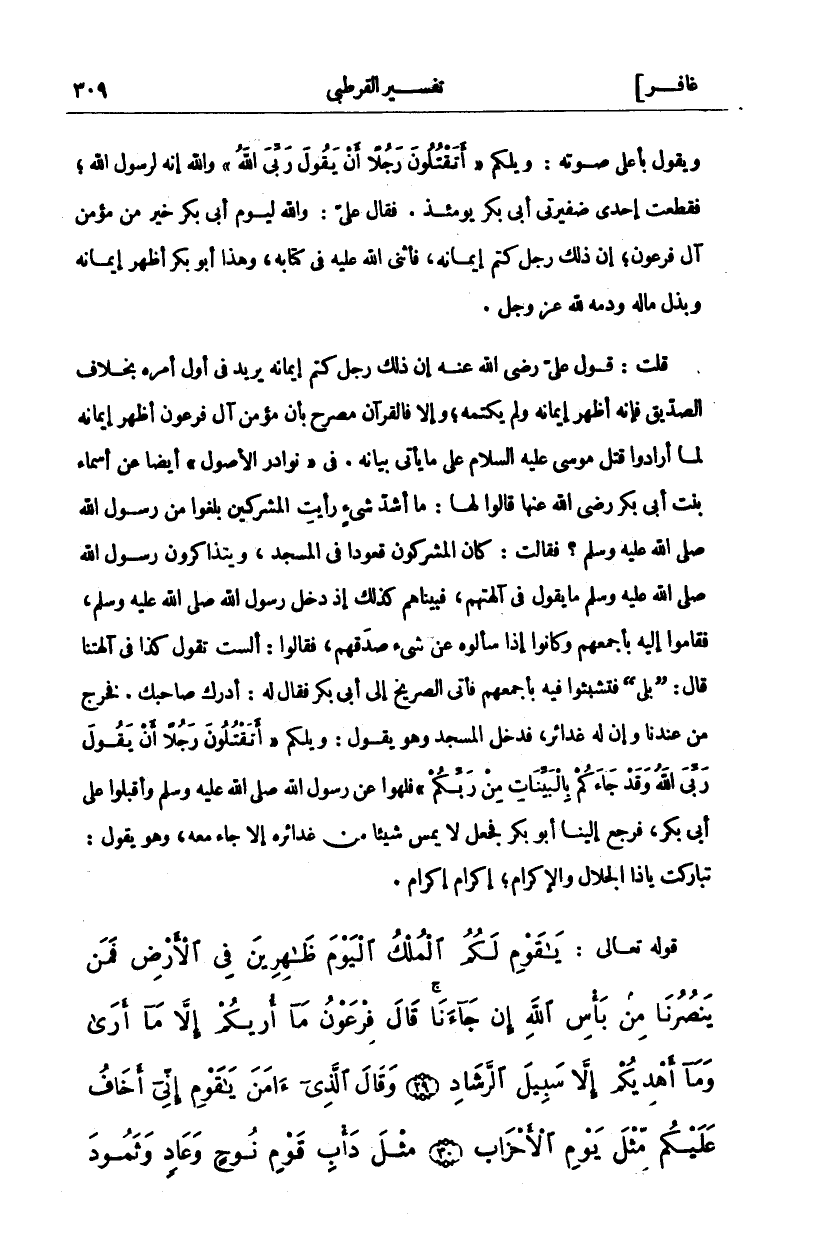 غافر] تفسير القرطبى ٣٠٩
ويقول بأعلى صوته : ويلكم « أَتَقْتُلُونَ رَجُلًا أَنْ يَقُولَ رَبِّىَ اللهُ » والله إنه لرسول الله ؛
فقطعت إحدى ضفيرتى أبى بكر يومئذ . فقال علىّ : والله ليوم أبى بكر خير من مؤمن
آل فرعون؛ إن ذلك رجل كتم إيمانه، فأثنى الله عليه فى كتابه، وهذا أبو بكر أظهر إيمانه
وبذل ماله ودمه لله عز وجل .
قلت : قول علىّ رضى الله عنه إن ذلك رجل كتم إيمانه يريد فى أول أمره بخلاف
الصدّيق فإنه أظهر إيمانه ولم يكتمه؛ وإلا فالقرآن مصرح بأن مؤمن آل فرعون أظهر إيمانه
لما أرادوا قتل موسى عليه السلام على ما يأتى بيانه . فى « نوادر الأصول » أيضا عن أسماء
بنت أبى بكر رضى الله عنها قالوا لها : ما أشدّ شىءٍ رأيتِ المشركين بلغوا من رسول الله
صلى الله عليه وسلم ؟ فقالت : كان المشركون قعودا فى المسجد ، ويتذاكرون رسول الله
صلى الله عليه وسلم ما يقول فى آلهتهم، فبيناهم كذلك إذ دخل رسول الله صلى الله عليه وسلم،
فقاموا إليه بأجمعهم وكانوا إذا سألوه عن شىء صدَقهم، فقالوا : ألست تقول كذا فى آلهتنا
قال: "بلى" فتشبثوا فيه بأجمعهم فأتى الصريخ إلى أبى بكر فقال له : أدرك صاحبك . فخرج
من عندنا وإن له غدائر، فدخل المسجد وهو يقول : ويلكم « أَتَقْتُلُونَ رَجُلًا أَنْ يَقُولَ
رَبِّىَ اللهُ وَقَدْ جَاءَكُمْ بِالْبَيِّنَاتِ مِنْ رَبِّكُمْ » فلهوا عن رسول الله صلى الله عليه وسلم وأقبلوا على
أبى بكر، فرجع إلينا أبو بكر فجعل لا يمس شيئا من غدائره إلا جاء معه، وهو يقول :
تباركت ياذا الجلال والإكرام؛ إكرام إكرام .
قوله تعالى : يَـٰقَوْمِ لَكُمُ ٱلْمُلْكُ ٱلْيَوْمَ ظَـٰهِرِينَ فِى ٱلْأَرْضِ فَمَن
يَنصُرُنَا مِنۢ بَأْسِ ٱللَّهِ إِن جَآءَنَا ۚ قَالَ فِرْعَوْنُ مَآ أُرِيكُمْ إِلَّا مَآ أَرَىٰ
وَمَآ أَهْدِيكُمْ إِلَّا سَبِيلَ ٱلرَّشَادِ ٢٩ وَقَالَ ٱلَّذِىٓ ءَامَنَ يَـٰقَوْمِ إِنِّىٓ أَخَافُ
عَلَيْكُم مِّثْلَ يَوْمِ ٱلْأَحْزَابِ ٣٠ مِثْلَ دَأْبِ قَوْمِ نُوحٍ وَعَادٍ وَثَمُودَ